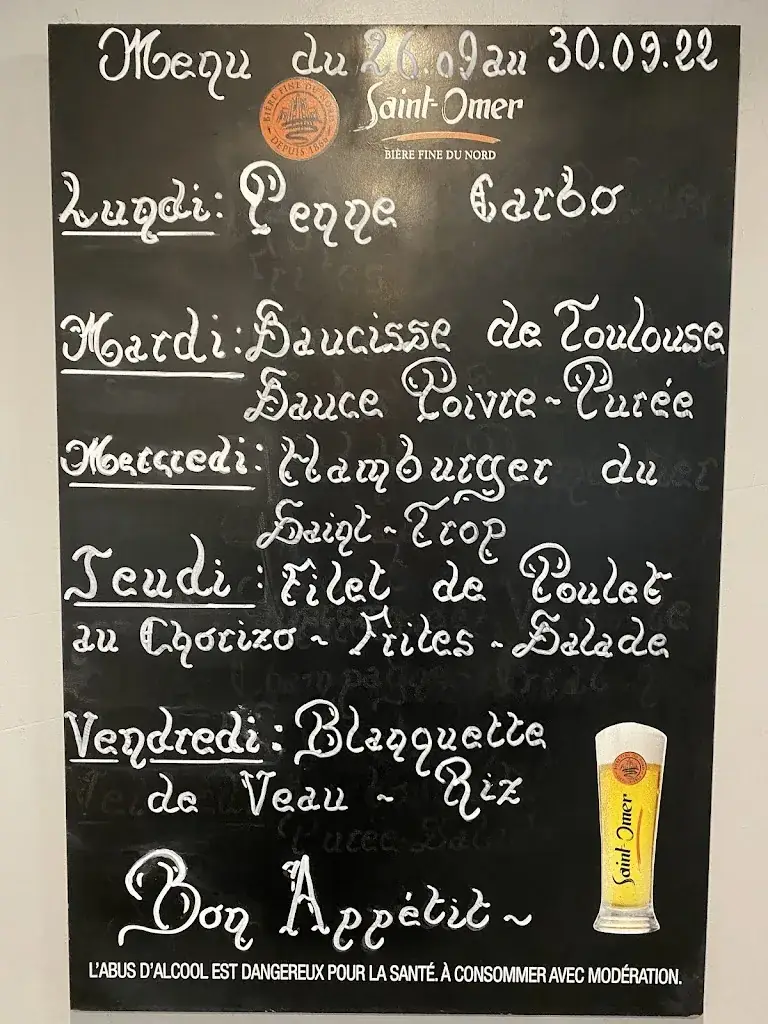 Menu du 26.09 au 30.09.22
BIÈRE FINE DU NORD
DEPUIS 1866
Saint-Omer
BIÈRE FINE DU NORD
Lundi: Penne Carbo
Mardi: Saucisse de Toulouse
Sauce Poivre ~ Purée
Mercredi: Hamburger du
Saint ~ Trop
Jeudi: Filet de Poulet
au Chorizo ~ Frites ~ Salade
Vendredi: Blanquette
de Veau ~ Riz
Saint-Omer
Bon Appétit ~
L'ABUS D'ALCOOL EST DANGEREUX POUR LA SANTÉ. À CONSOMMER AVEC MODÉRATION.